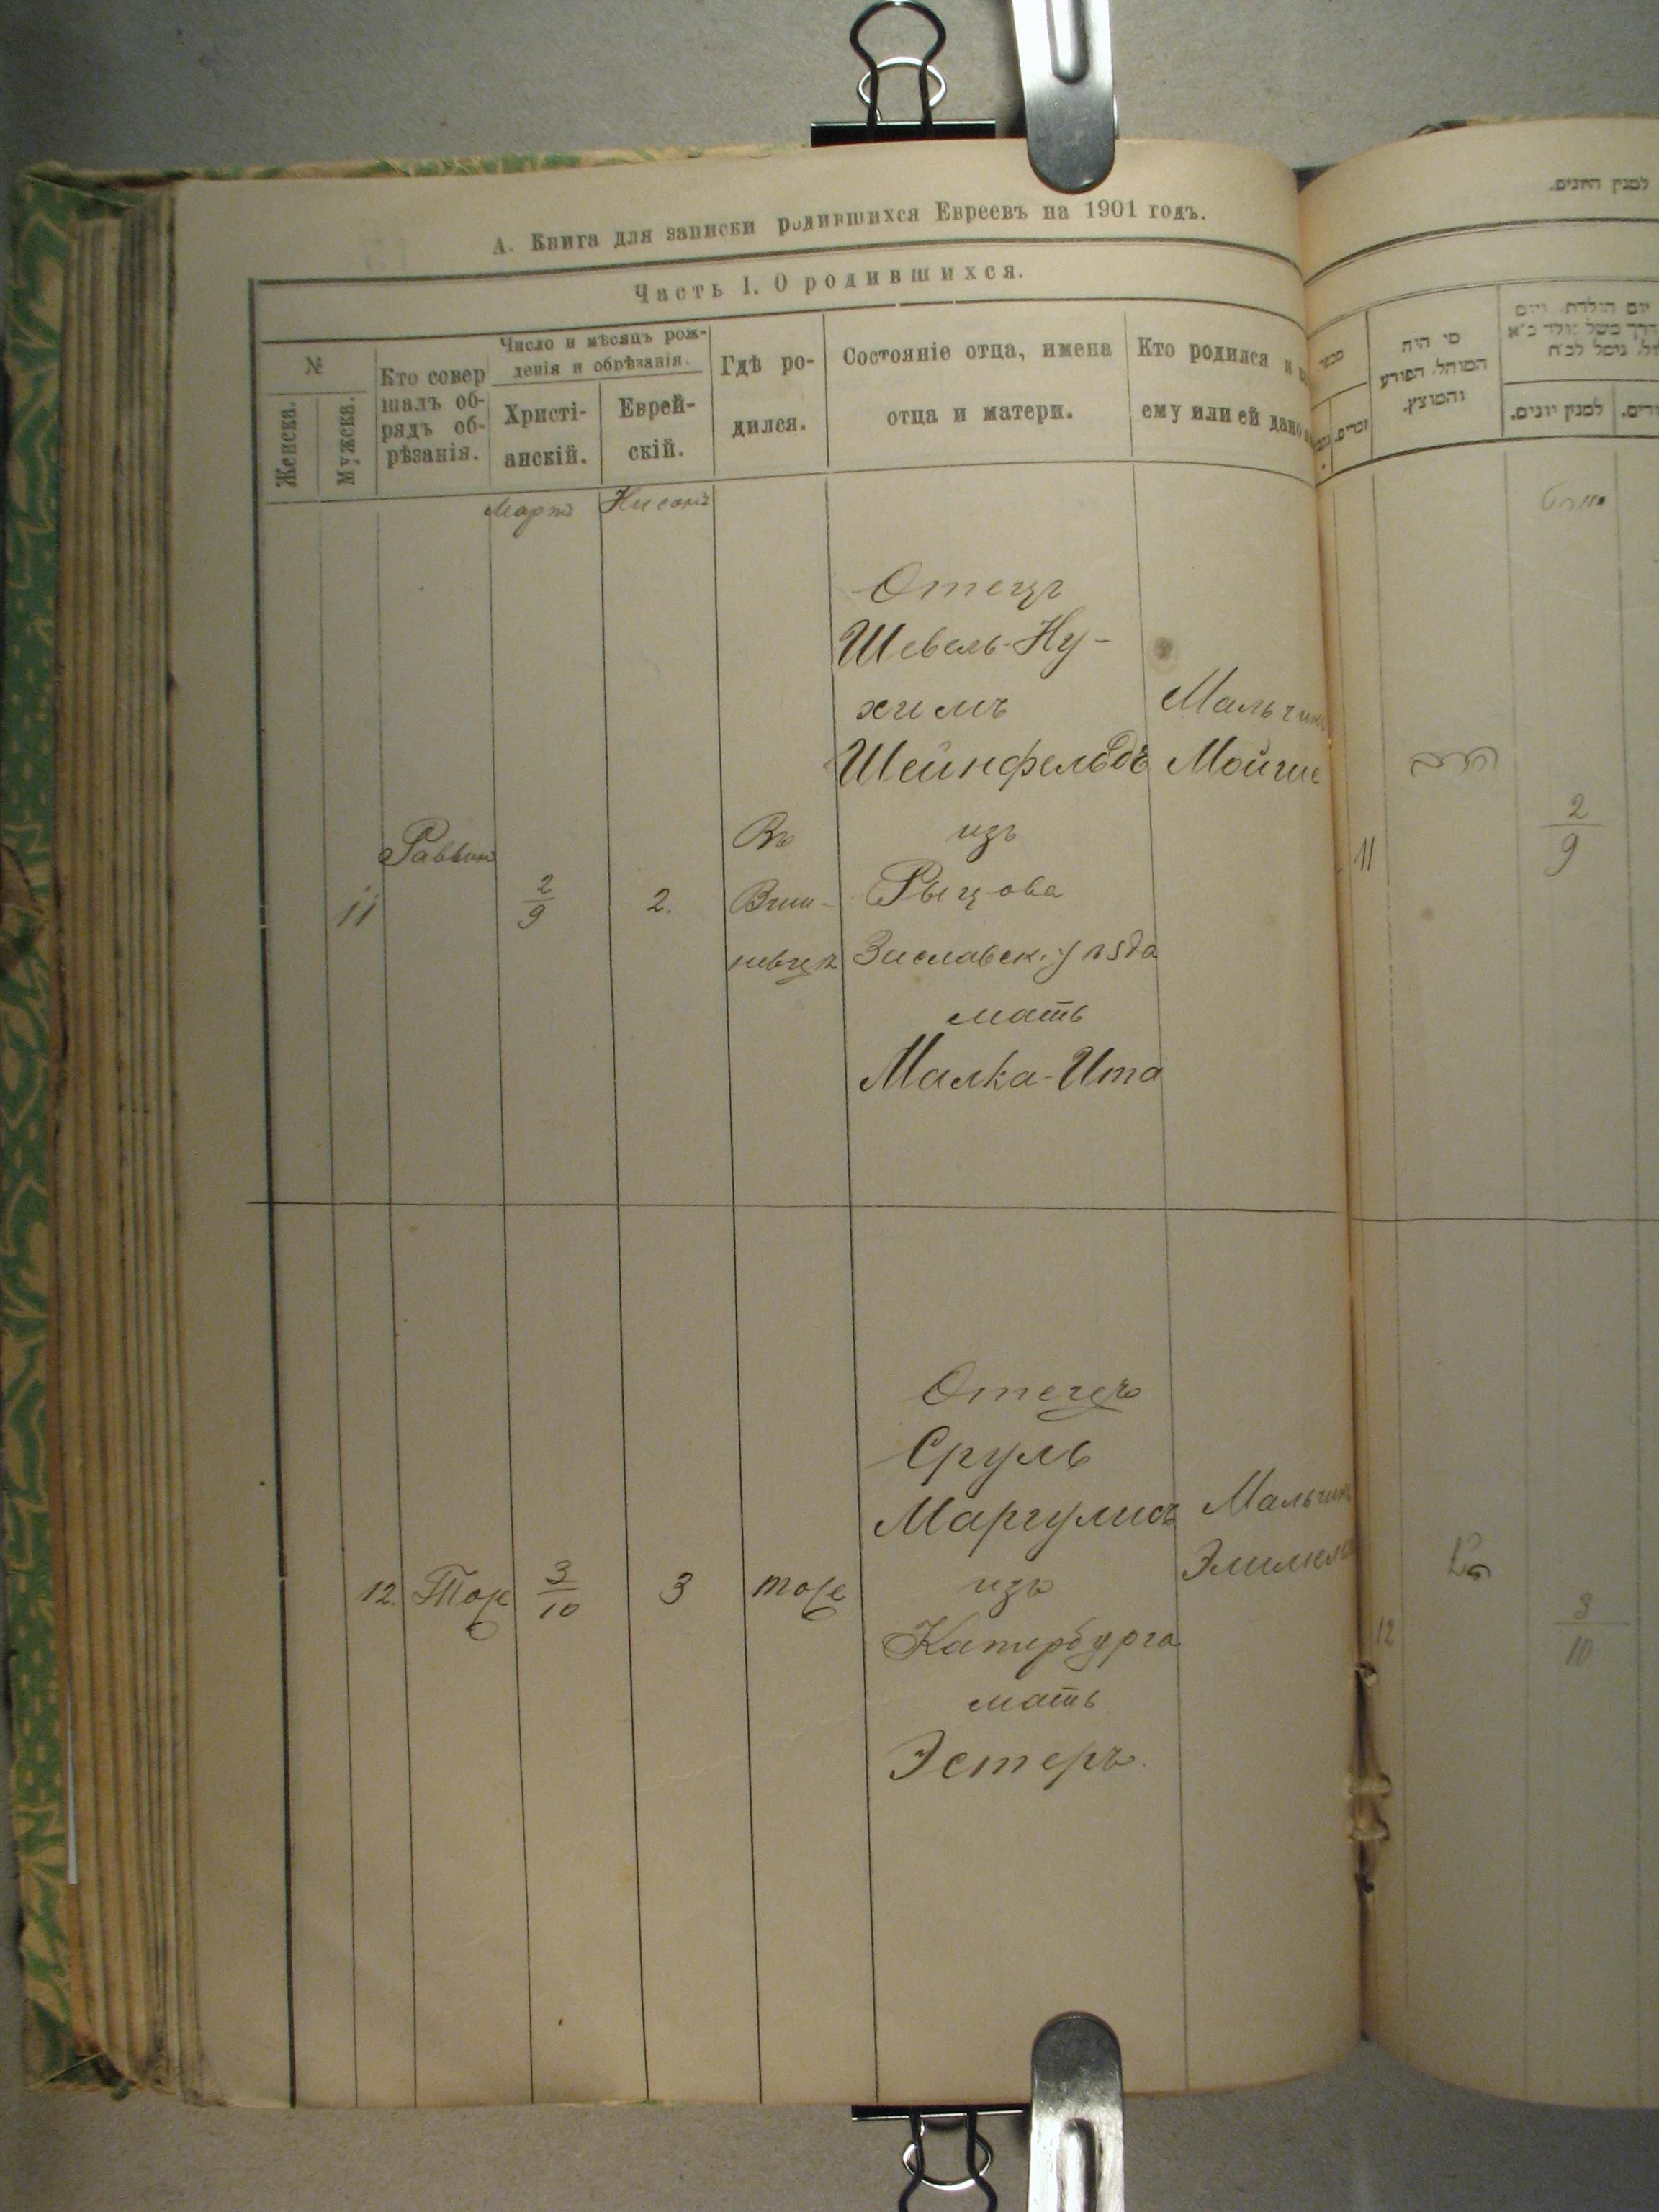 А. Книга для записки родившихся Евреевъ на 1901 годъ.
Часть I. О родившихся.
№
Женска.
Мужска.
Кто совер
шалъ об-
рядъ об-
рѣзанія.
Число и мѣсяцъ рож-
денія и обрѣзанія.
Христі-
анскій.
Еврей-
скій.
Гдѣ ро-
дился.
Состояніе отца, имена
отца и матери.
Кто родился и
ему или ей дано
Мартъ
Нисонъ
11
Раввин
2/9
2.
Въ
Отецъ
Шевель-Ну-
химъ
Шейнфельдъ
изъ
Рыцова
Заславск. уѣзда
мать
Малка-Ита
Мальчикъ
Мойше
12.
Тоже
3/10
3
тоже
Отецъ
Сруль
Маргулисъ
изъ
Катербурга
мать
Эстеръ.
Мальчикъ
למנין היונים.
מי היה
המוהל, הפורע
והמוצץ.
מספר
זכרים.
למנין יונים.
11
2/9
12
3/10